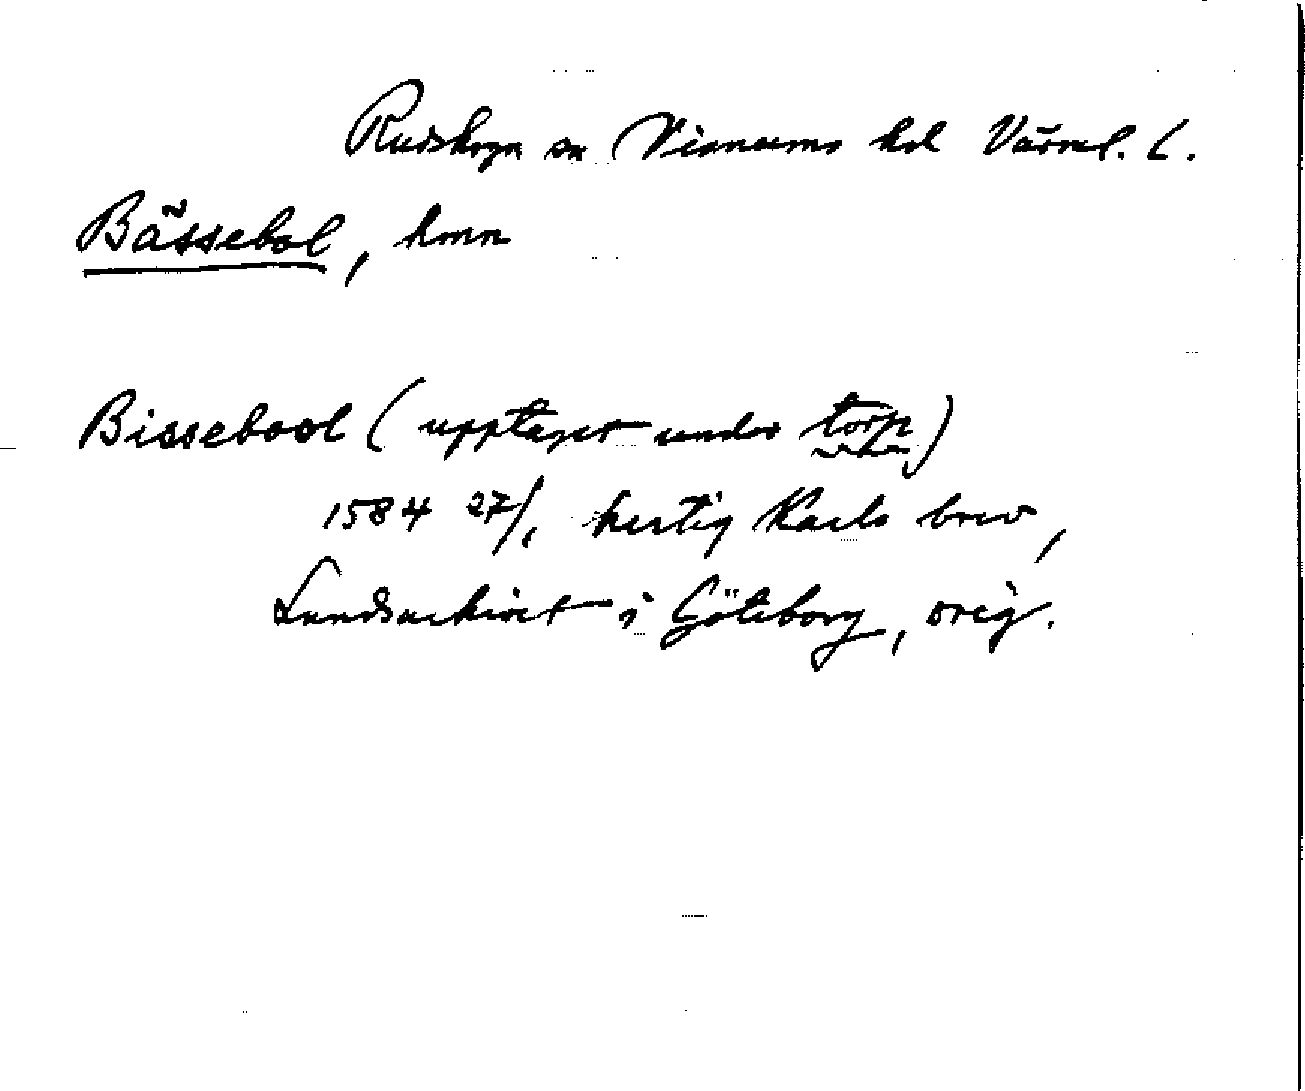 Rudskoga sn Visnums hd Värml. l.
Bässebol, hmn
Bissebool (upptaget under torp)
1584 27/1 hertig Karls brev,
Landsarkivet i Göteborg, orig.